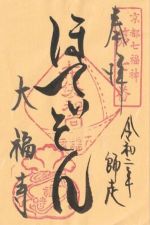 奉拝
京都七福神
令和二年
師走
ほていそん
大福寺